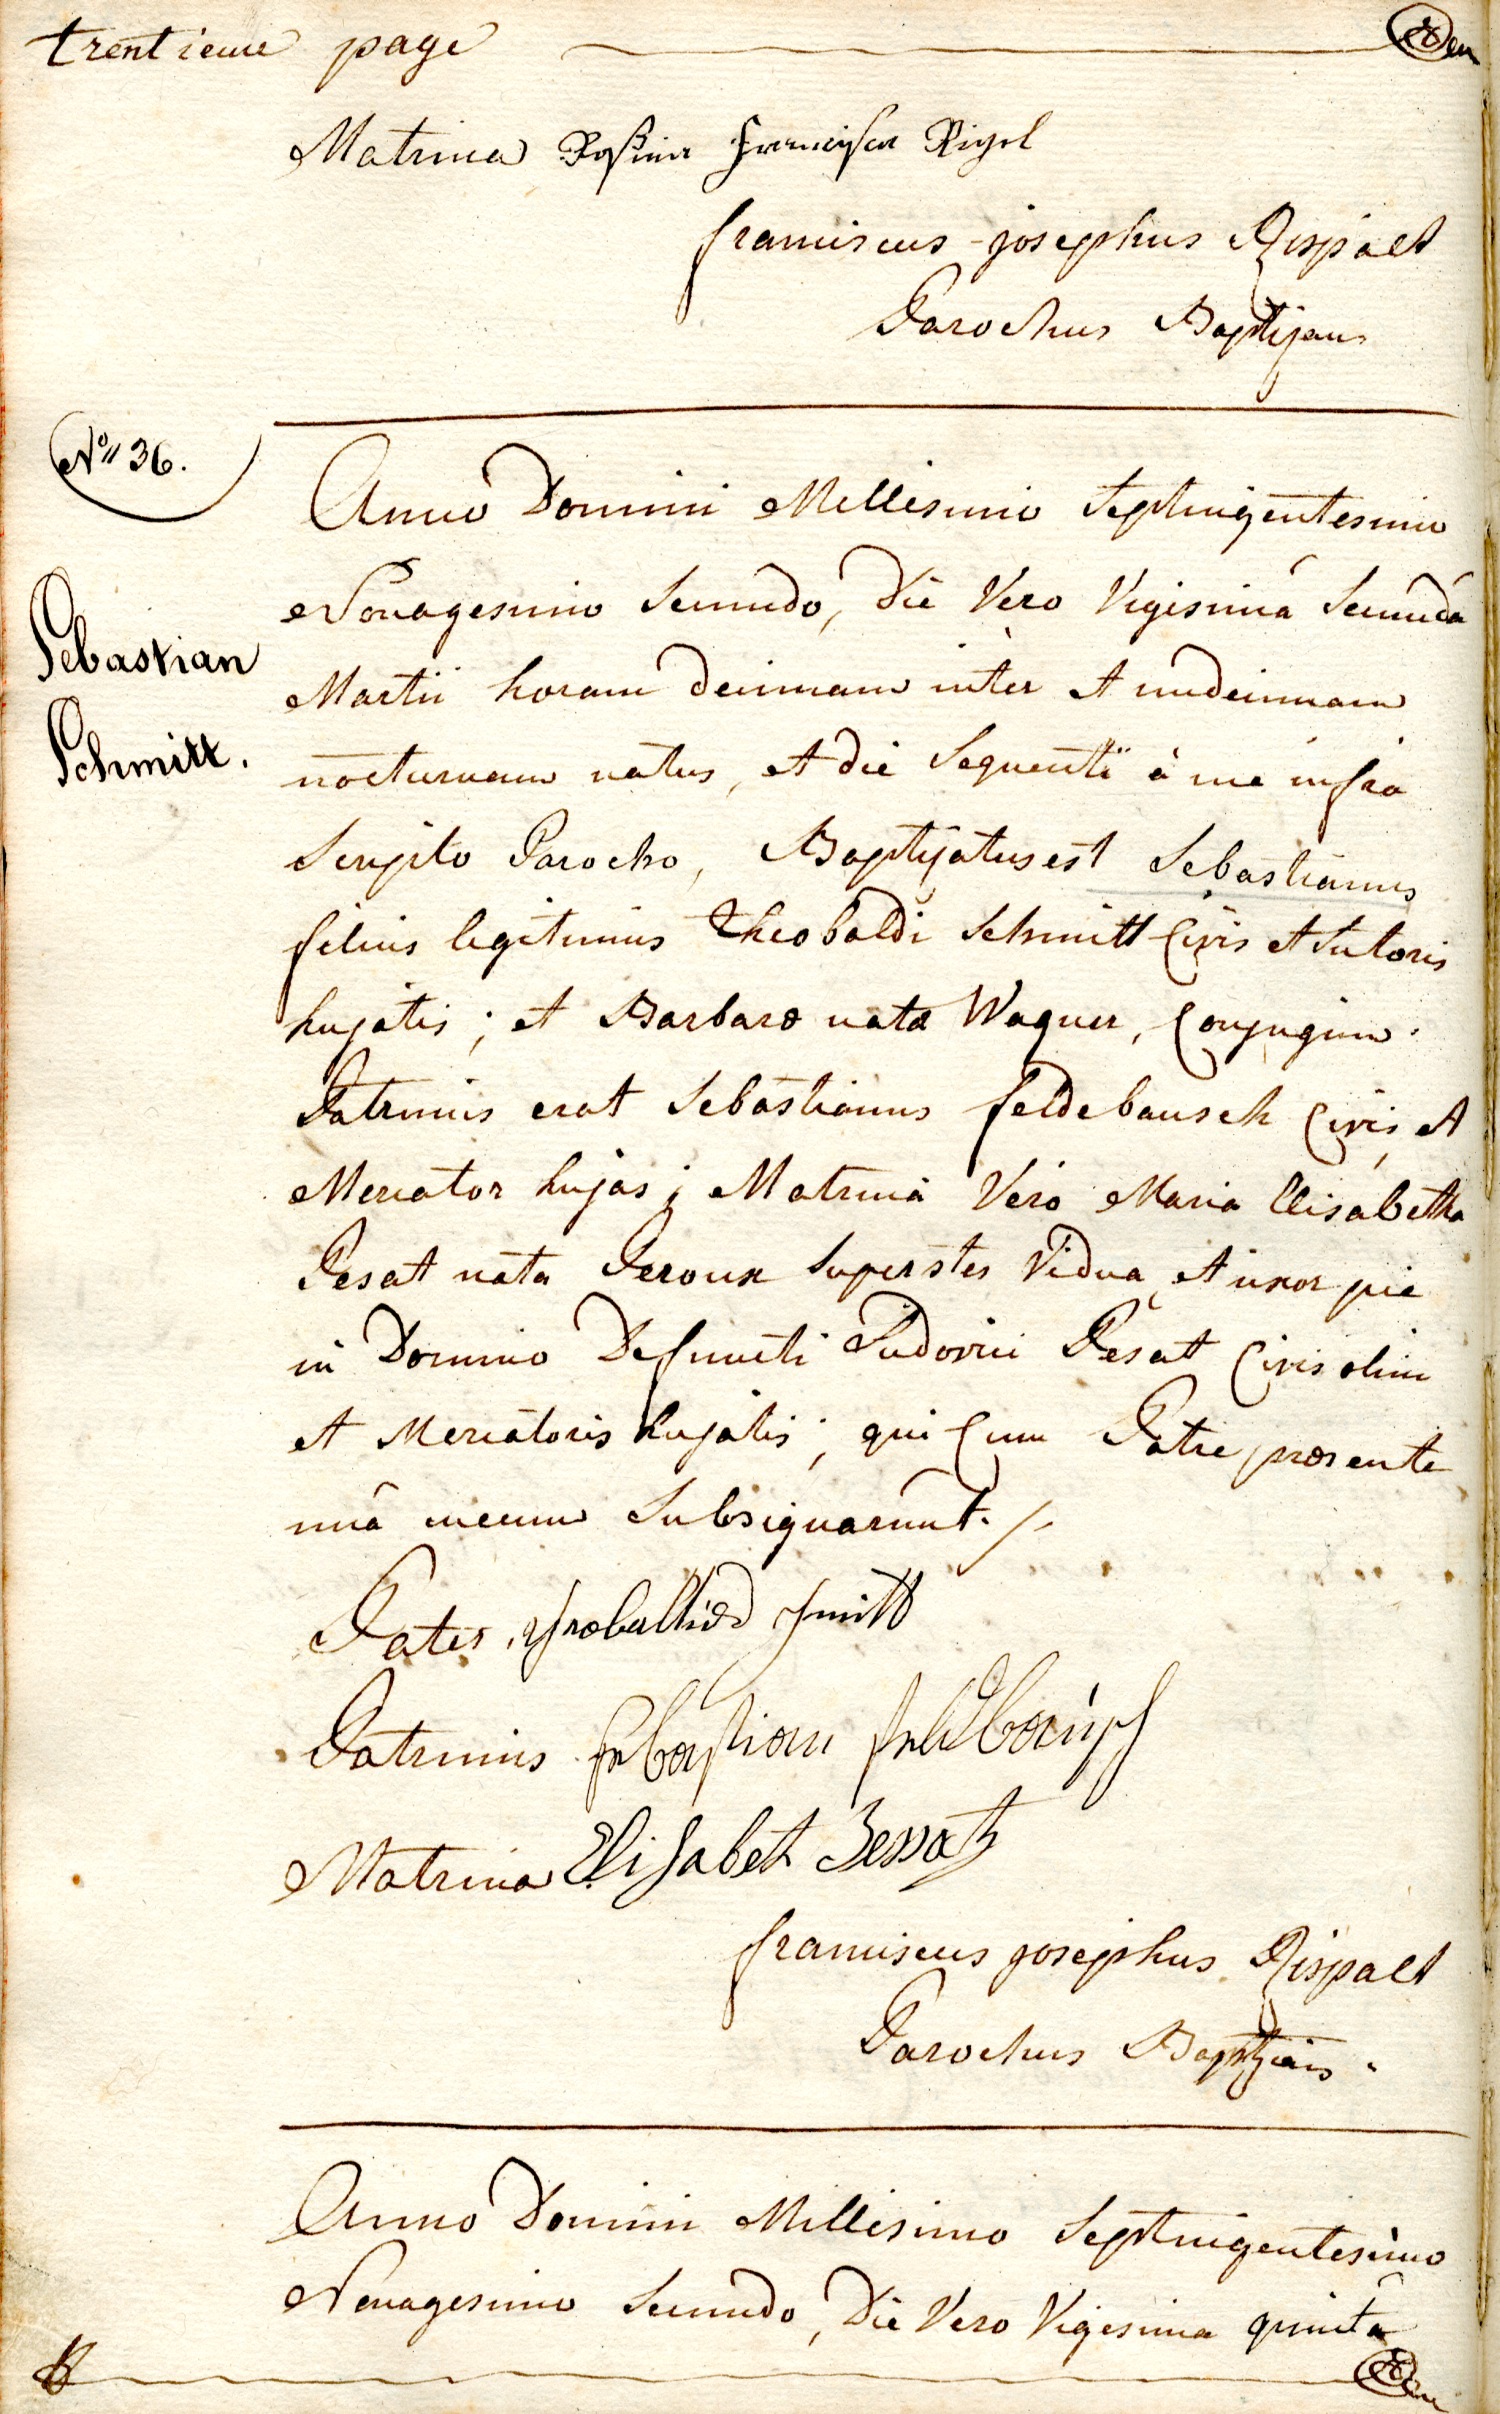 trentieme page
Matrina Rosina Francisca Rigel
franciscus-josephus Rispalt
Parochus Baptizans
N° 36.
Sebastian
Schmitt.
Anno Domini Millesimo Septingentesimo
Nonagesimo Secundo, die Vero Vigesimâ Secundâ
Martii horam decimam inter et undecimam
nocturnam natus, et die Sequenti à me infra
Scripto Parocho, Baptizatus est Sebastianus
filius legitimus Theobaldi Schmitt Civis et Sutoris
hujatis; et Barbaræ natæ Wagner, Conjugum.
Patrinus erat Sebastianus feldebausch Civis et
Mercator hujas; Matrina Vero Maria Elisabetha
Pesat nata Peroux Superstes Vidua et uxor pie
in Domino Defuncti Ludovici Pesat Civis olim
et Mercatoris hujatis; qui Cum Patre præsente
unâ mecum Subsignarunt. /.
Pater, Smitt
Patrinus Sebastian feldbausch
Matrina Elisabeth Bessat
franciscus josephus Rispalt
Parochus Baptizans.
Anno Domini Millesimo Septingentesimo
Nonagesimo Secundo, Die Vero Vigesima quintâ